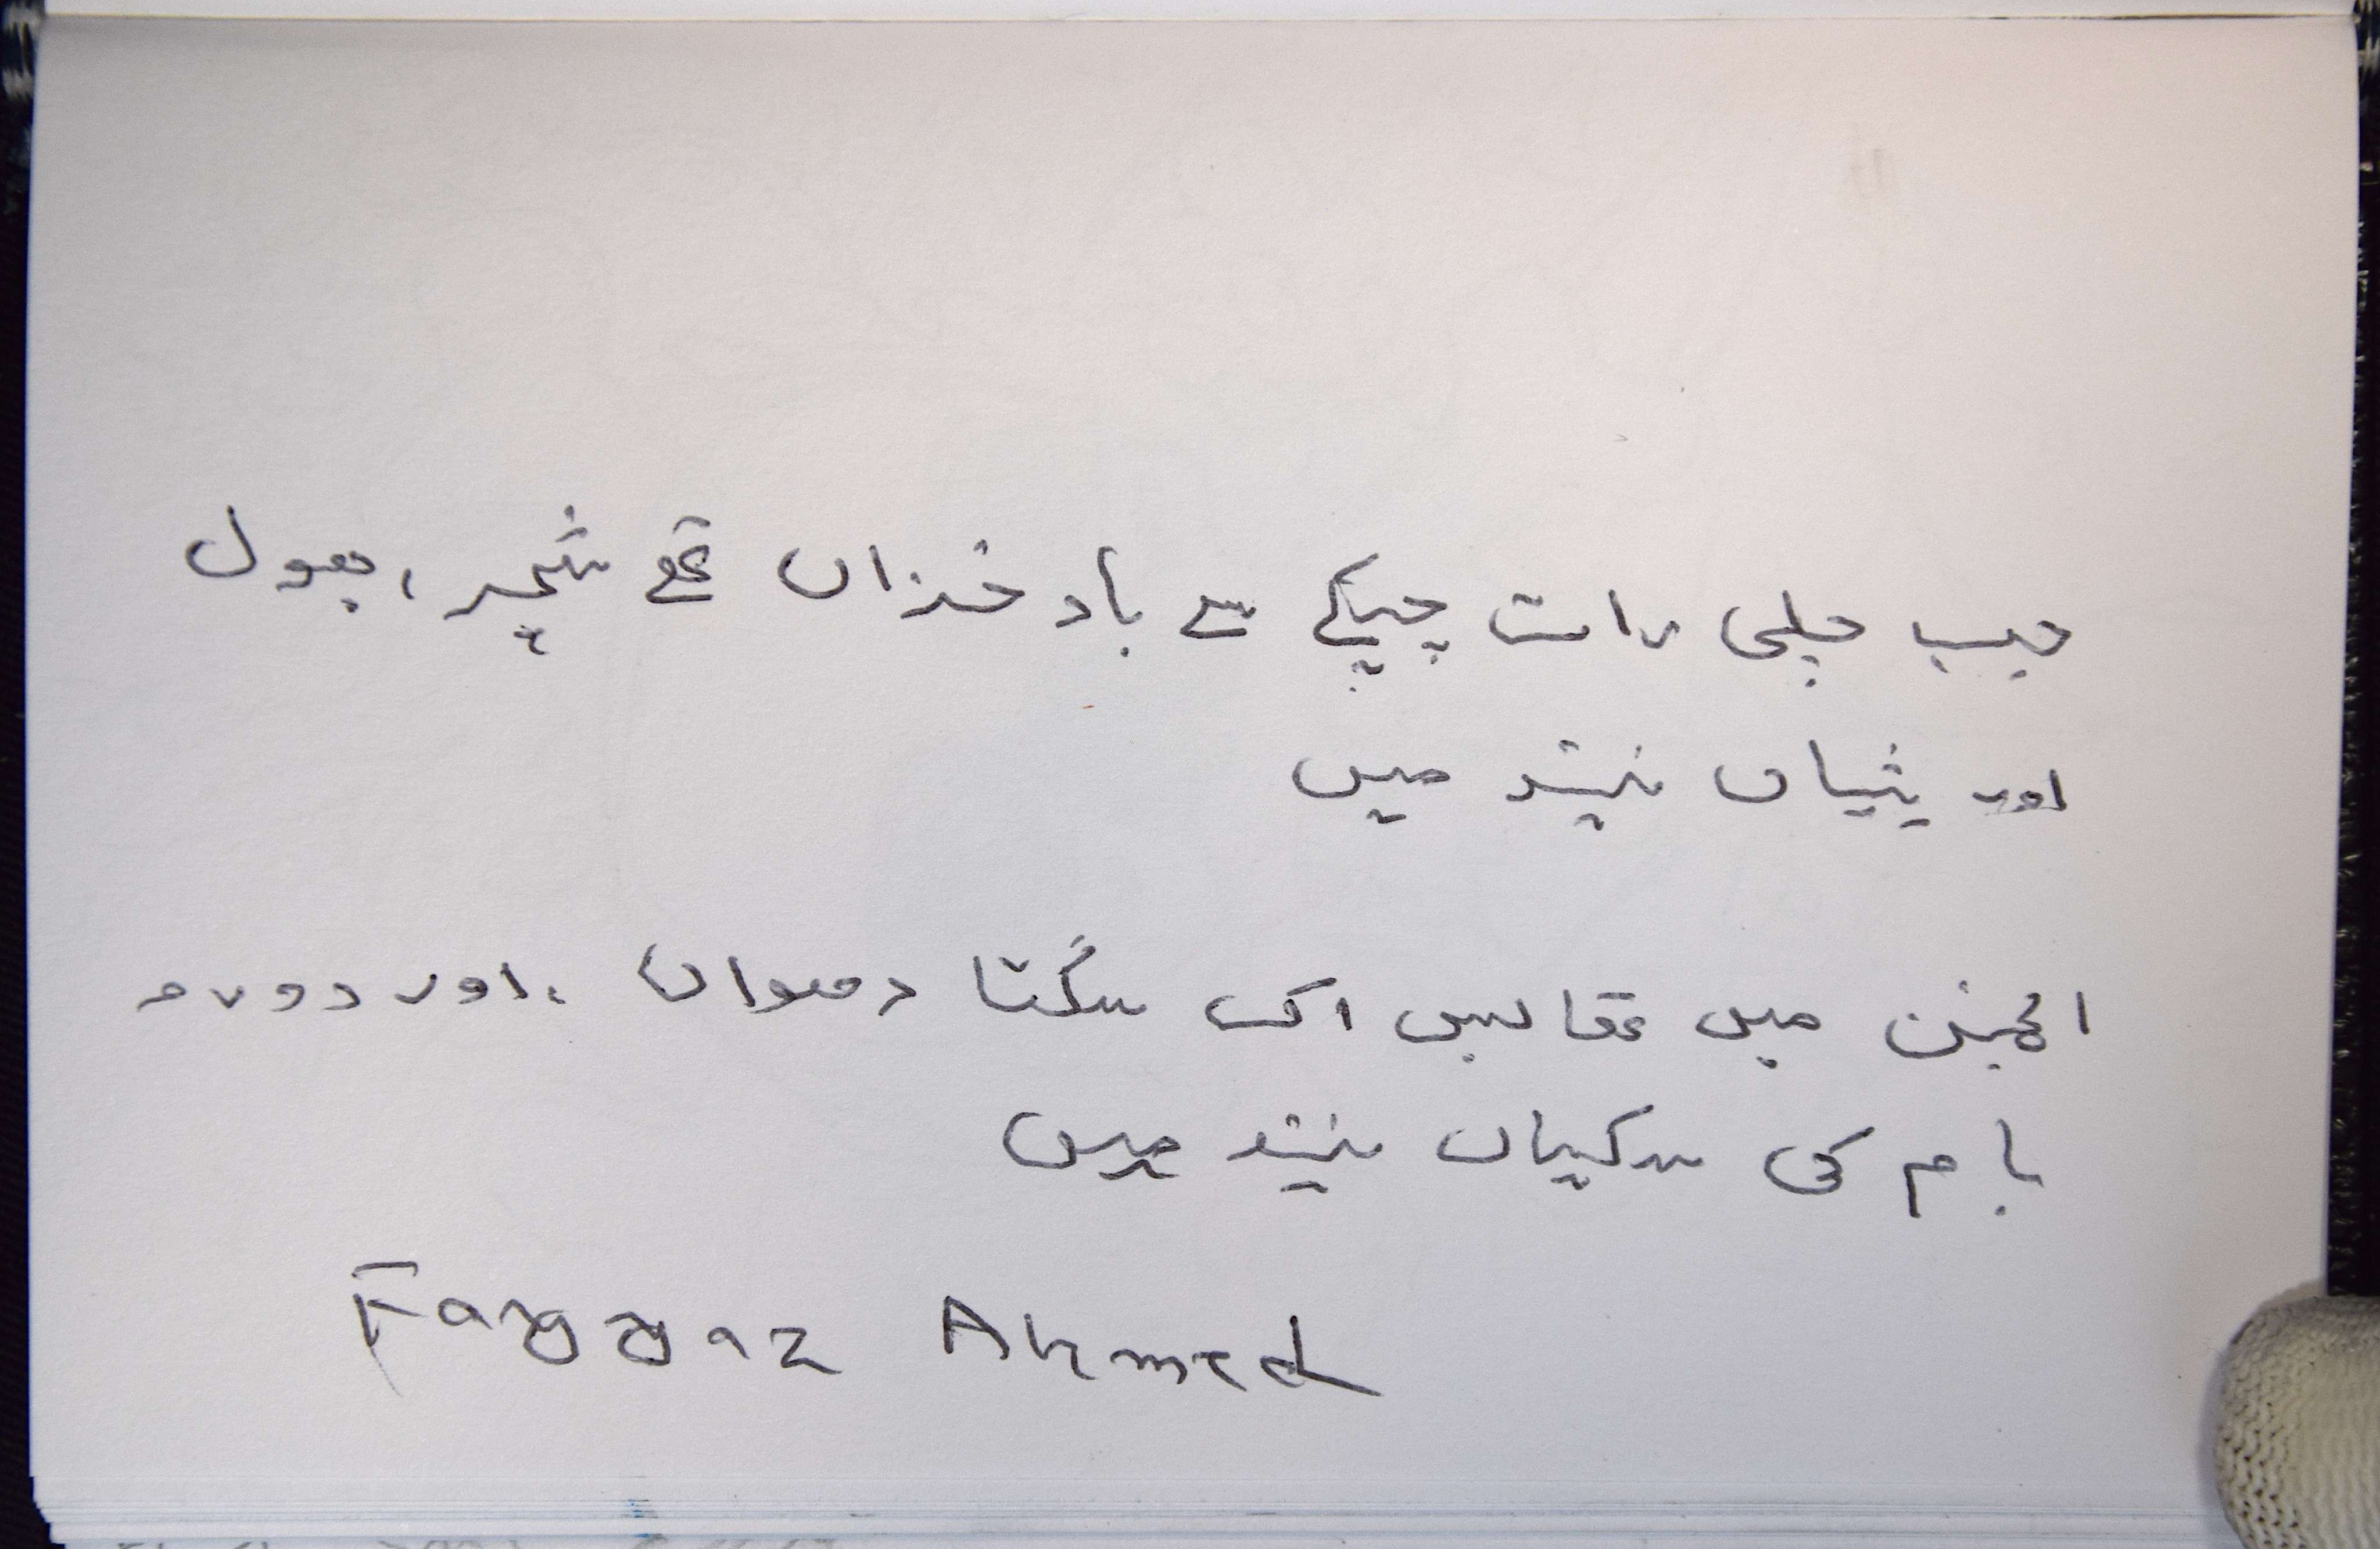 جب چلی رات چپکے سے باد خزاں تھے شجر، پھول
اور پتیاں نیند میں
انجمن میں تھا بس اک سلگتا دھواں، اور در و
بام کی سسکیاں نیند میں
Fayyaz Ahmed